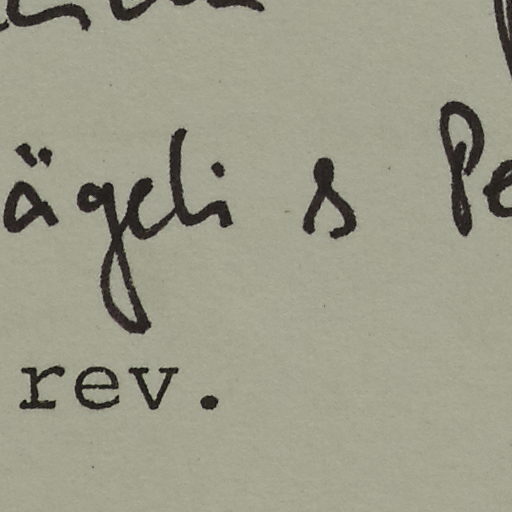 ägeli & Pe
rev.